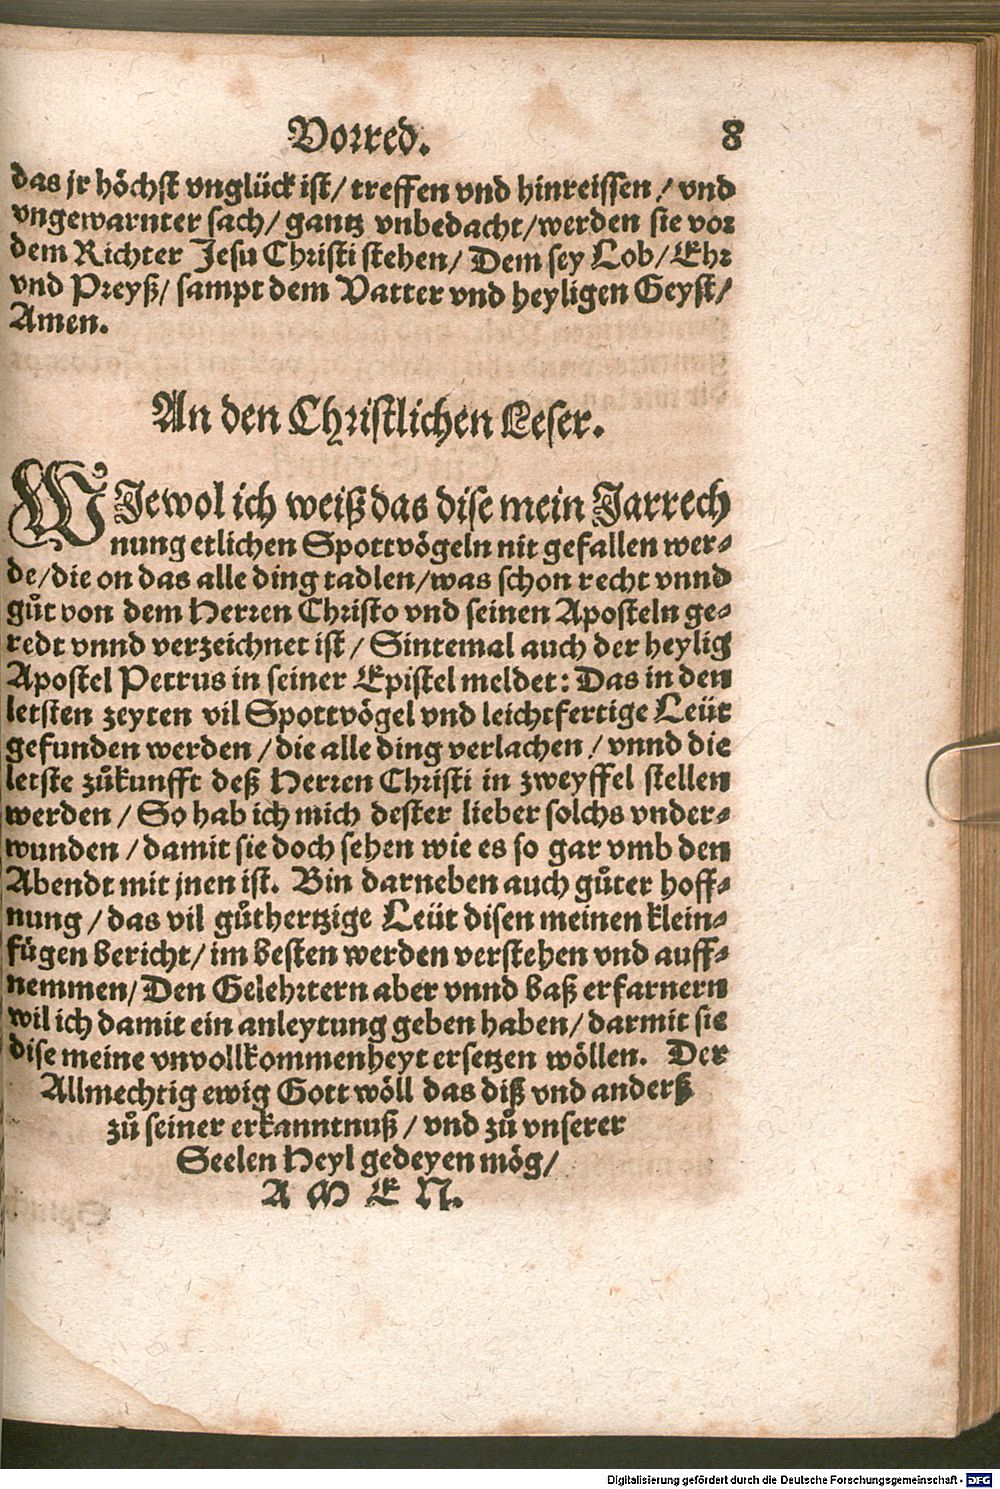 Vorred. 8
das jr höchst vnglück ist/ treffen vnd hinreissen/ vnd
vngewarnter sach/ gantz vnbedacht/werden sie vor
dem Richter Jesu Christi stehen/ Dem sey Lob/ Ehr
vnd Preyß/ sampt dem Vatter vnd heyligen Geyst/
Amen.
An den Christlichen Leser.
WJewol ich weiß das dise mein Jarrech
nung etlichen Spottvögeln nit gefallen wer-
de/die on das alle ding tadlen/was schon recht vnnd
gůt von dem Herren Christo vnd seinen Aposteln ge-
redt vnnd verzeichnet ist/ Sintemal auch der heylig
Apostel Petrus in seiner Epistel meldet: Das in den
letsten zeyten vil Spottvögel vnd leichtfertige Leüt
gefunden werden /die alle ding verlachen / vnnd die
letste zůkunfft deß Herren Christi in zweyffel stellen
werden / So hab ich mich dester lieber solchs vnder-
wunden /damit sie doch sehen wie es so gar vmb den
Abendt mit jnen ist. Bin darneben auch gůter hoff-
nung /das vil gůthertzige Leüt disen meinen klein-
fügen bericht/ im besten werden verstehen vnd auff-
nemmen/ Den Gelehrtern aber vnnd baß erfarnern
wil ich damit ein anleytung geben haben/ darmit sie
dise meine vnvollkommenheyt ersetzen wöllen. Der
Allmechtig ewig Gott wöll das diß vnd anderß
zů seiner erkanntnuß / vnd zů vnserer
Seelen Heyl gedeyen mög/
A M E N.
Digitalisierung gefördert durch die Deutsche Forschungsgemeinschaft - DFG